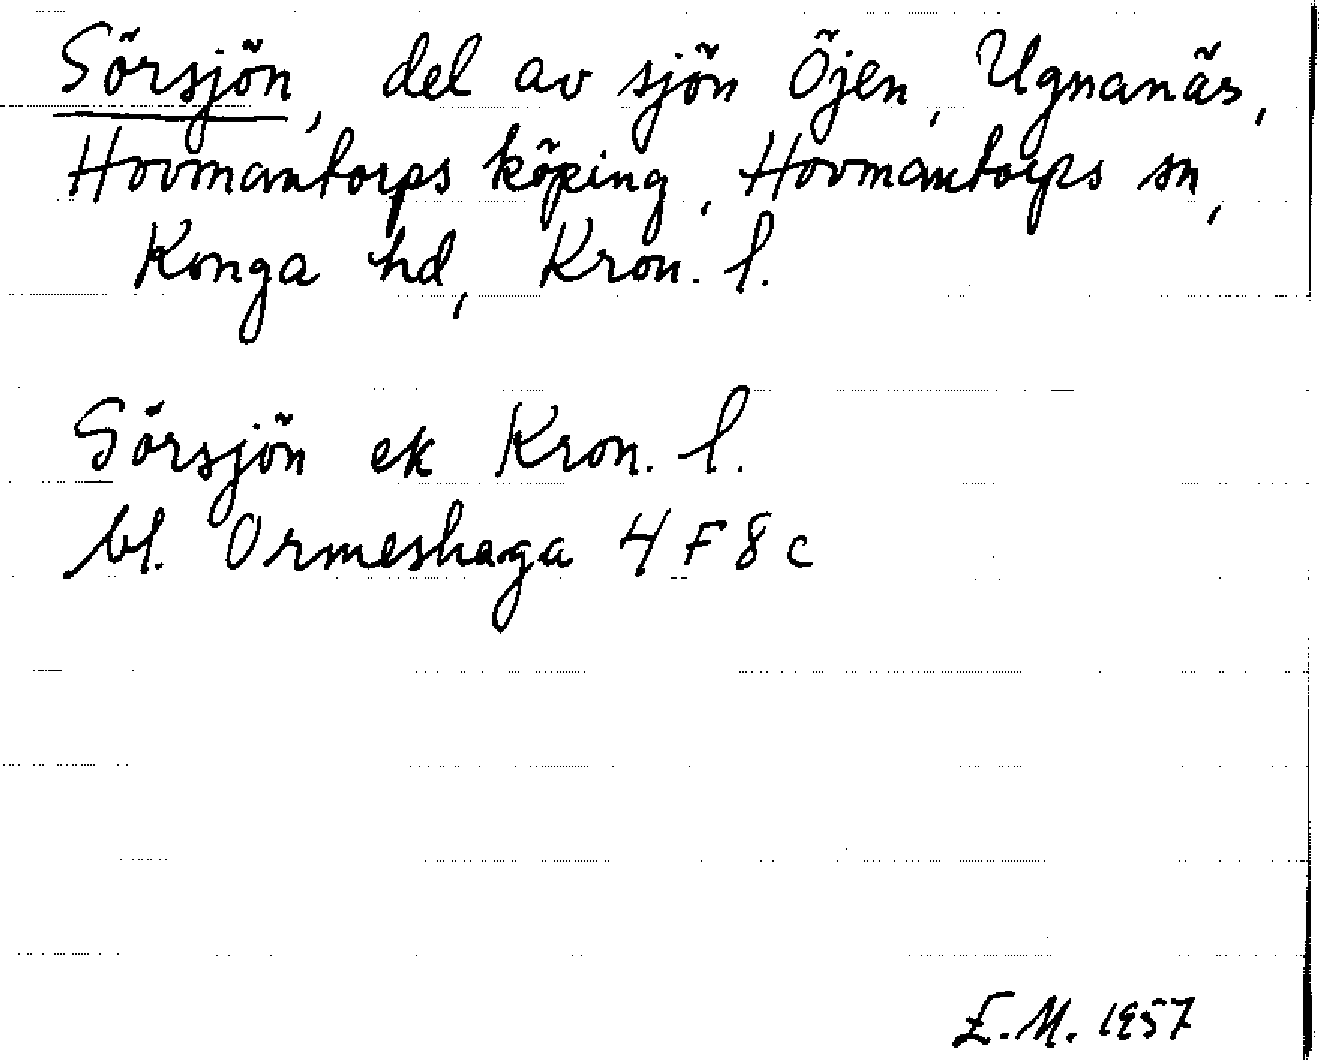 Sörsjön, del av sjön Öjen, Ugnanäs,
Hovmantorps köping, Hovmantorps sn,
Konga hd, Kron. l.
Sörsjön ek Kron. l.
bl. Ormeshaga 4 F 8 c
E.M. 1957